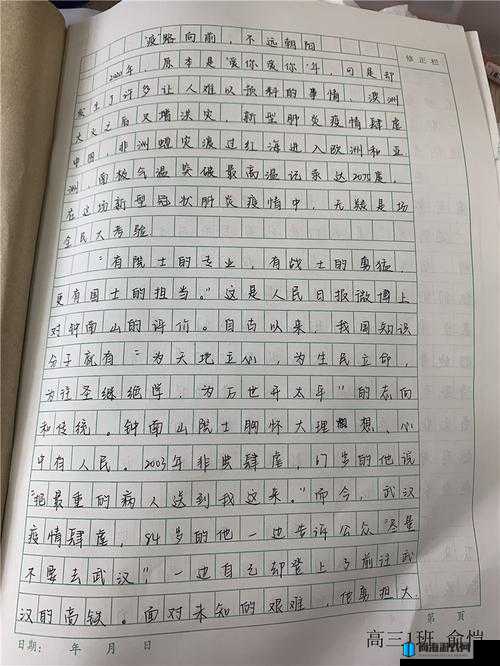 踱路向前，不远朝阳
修正栏
2020年，原本是"爱你爱你"年，可是却
发生了许多让人难以预料的事情，澳洲
大火之后又璃洪灾，新型肺炎疫情肆虐
中国，非洲蝗灾渡过红海进入欧洲和亚
洲，南极气温突破最高温记录达20.75度，
在这场新型冠状肺炎疫情中，无疑是场
全民大考验
"有院士的专业，有战士的勇猛，
更有国士的担当。"这是人民日报微博上
对钟南山的评价。自古以来，我国知识
分子就有"为天地立心，为生民立命，
为往圣继绝学，为万世开太平"的志向
和传统。钟南山院士胸怀大理想，心
中有人民。2003年非典肆虐，67岁的他说
"把最重的病人送到我这来。"而今，武汉
疫情肆虐，84岁的他一边告诉公众"尽量
不要去武汉"，一边自己却登上了前往武
汉的高铁。面对未知的艰难，他勇担大
日期： 年 月 日
第 页
高三1班 俞恺